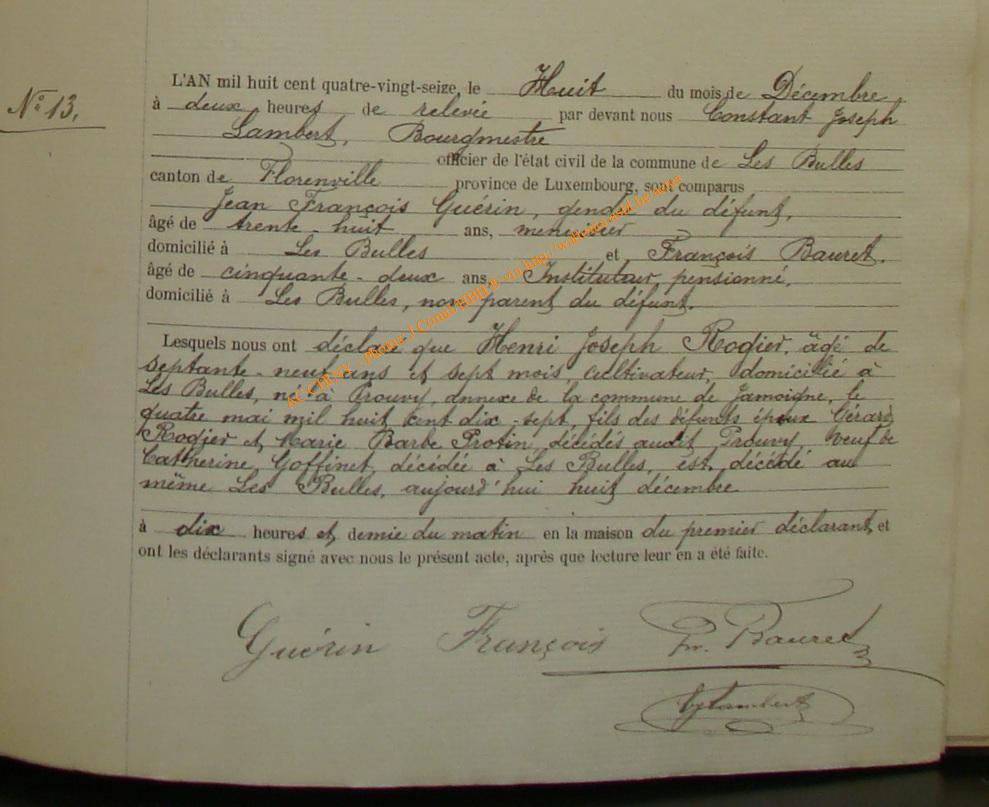 N° 13.
L'AN mil huit cent quatre-vingt-seize, le Huit du mois de Décembre,
à deux heures de relevée par devant nous Constant Joseph
Lambert, Bourgmestre
officier de l'état civil de la commune de Les Bulles
canton de Florenville province de Luxembourg, sont comparus
Jean François Guérin, gendre du défunt,
âgé de trente-huit ans, menuisier
domicilié à Les Bulles et François Bauret.
âgé de cinquante-deux ans Instituteur pensionné,
domicilié à Les Bulles, non parent du défunt.
Lesquels nous ont déclaré que Henri Joseph Rogier, âgé de
septante-neuf ans et sept mois, cultivateur, domicilié à
Les Bulles, né à Prouvy, annexe de la commune de Jamoigne, le
quatre mai mil huit cent dix-sept, fils des défunts époux Gérard
Rogier et Marie Barbe Protin, décédés audit Prouvy, veuf de
Catherine Goffinet, décédée à Les Bulles, est décédé au
même Les Bulles, aujourd'hui huit décembre
à dix heures et demie du matin en la maison du premier déclarant, et
ont les déclarants signé avec nous le présent acte, après que lecture leur en a été faite.
Guérin François Fr. Bauret
CJLambert